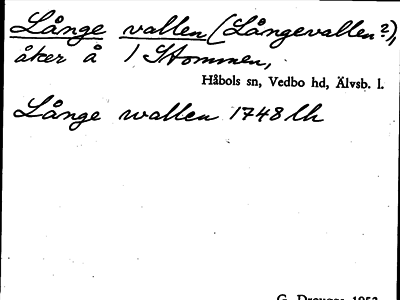 Långe vallen (Långevallen?),
åker å 1 Stommen,
Håbols sn, Vedbo hd, Älvsb. l.
Långe wallen 1748 lh